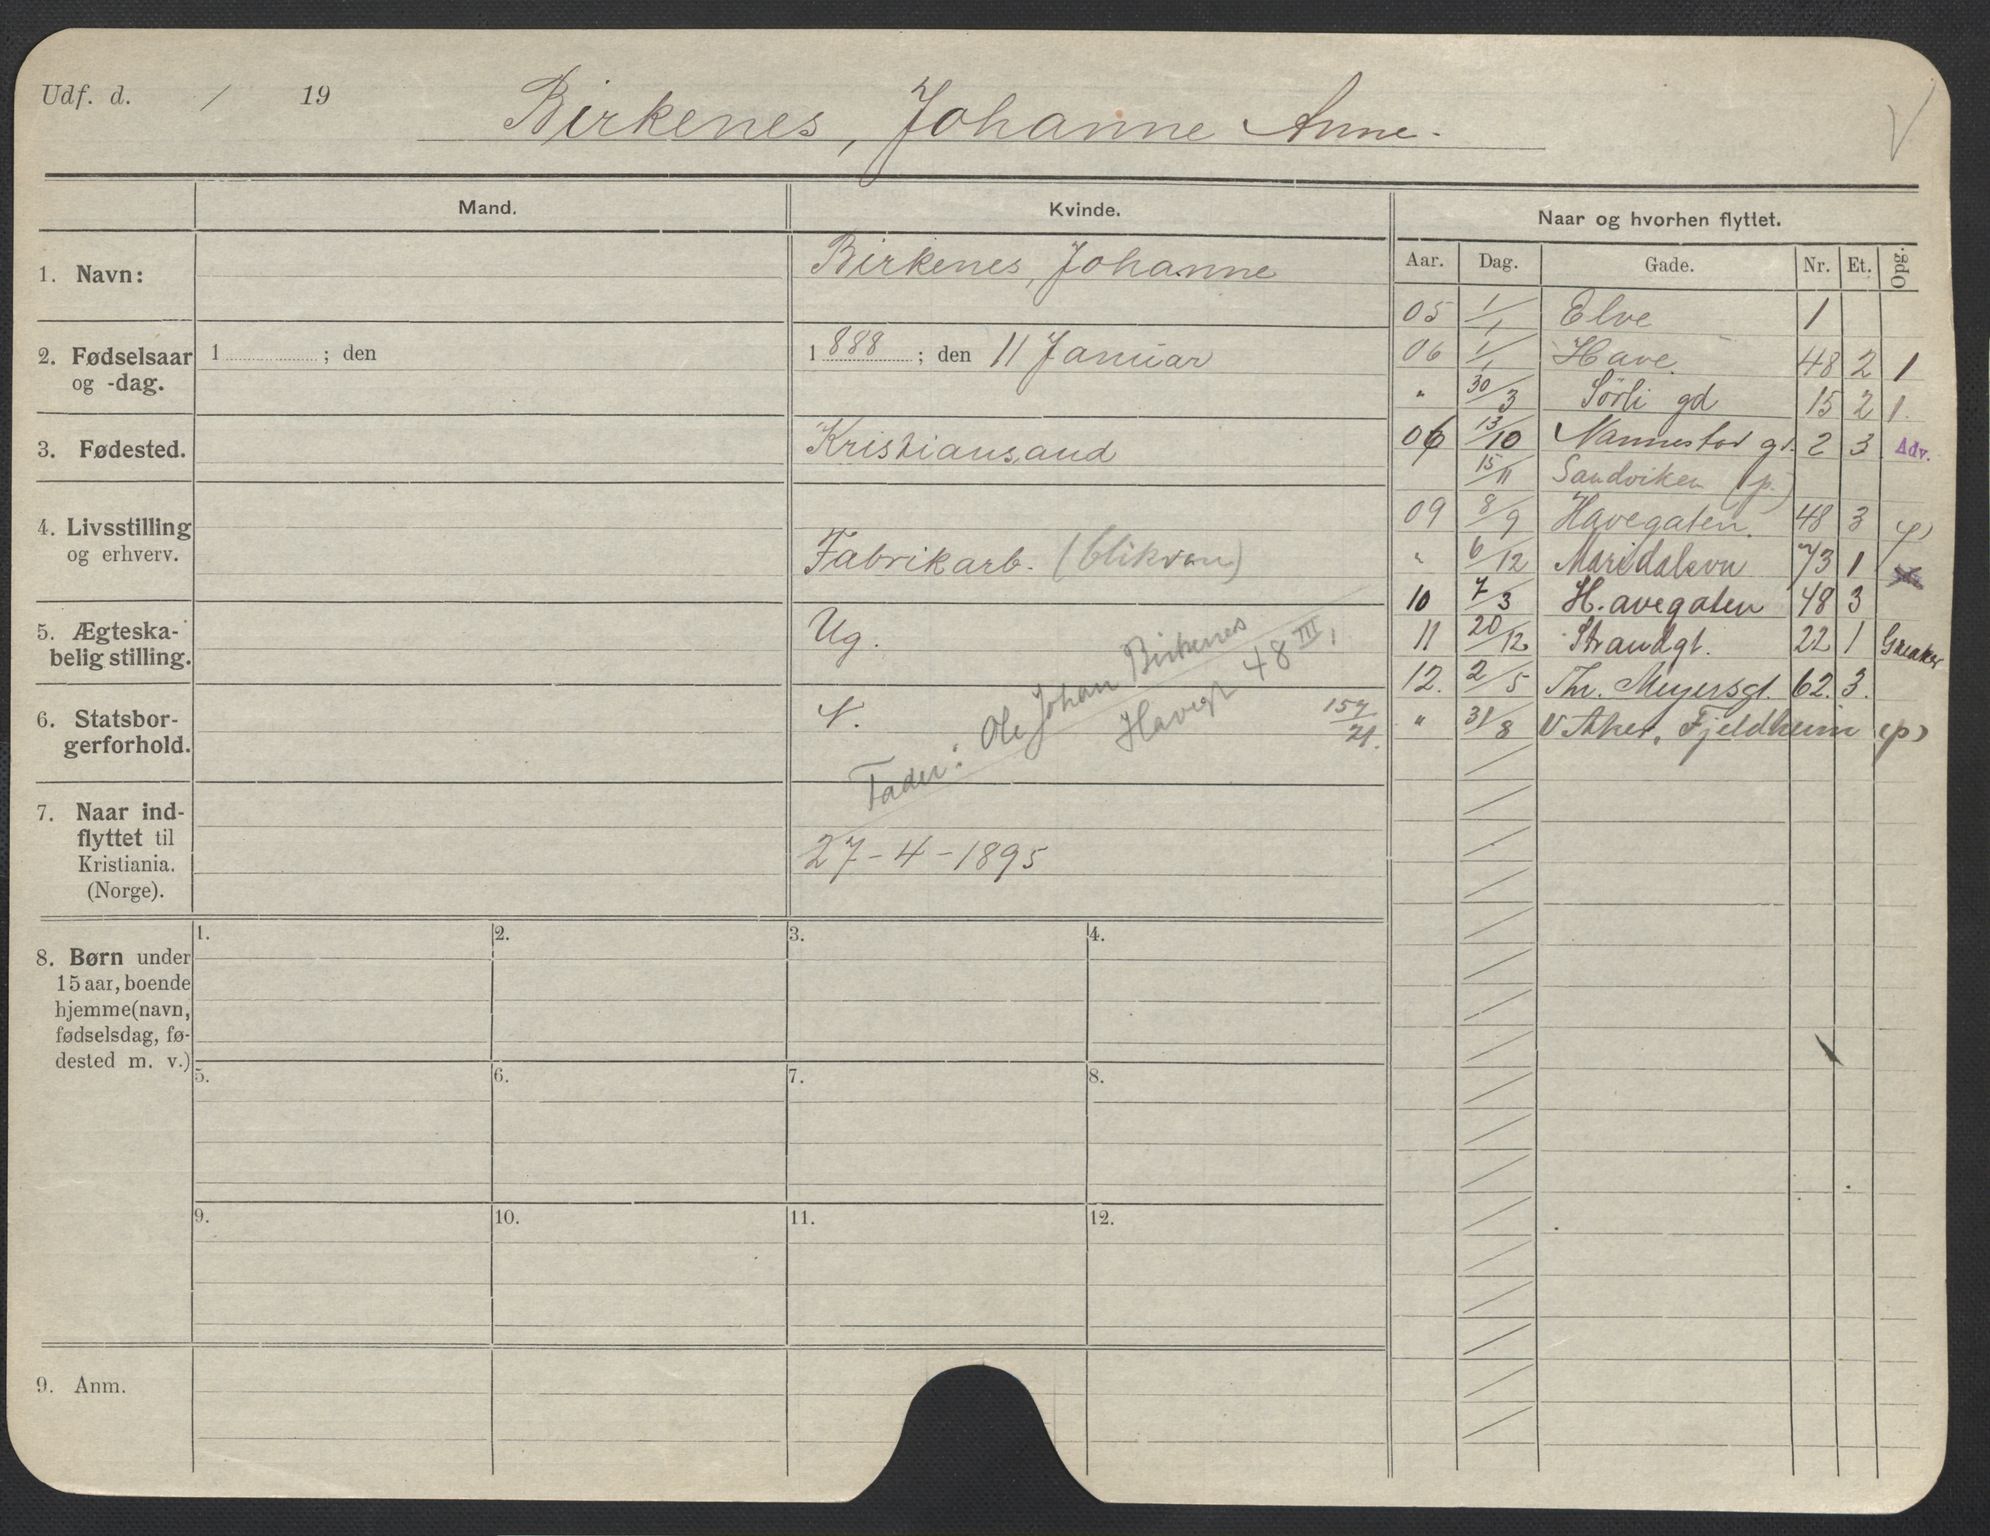 Udf. d. / 19
Birkenes, Johanne Anne.
V
Mand. Kvinde. Naar og hvorhen flyttet.
Aar. Dag. Gade. Nr. Et. Opg.
1. Navn:
Birkenes, Johanne
2. Fødselsaar
og -dag.
1 ; den
1 888 ; den 11 Januar
3. Fødested.
Kristiansand
4. Livsstilling
og erhverv.
Fabrikarb. (blikvan)
5. Ægteska-
belig stilling.
Ug.
6. Statsbor-
gerforhold.
N.
157/21.
Fader: Ole Johan Birkenes
Havegt 48 III,
7. Naar ind-
flyttet til
Kristiania.
(Norge).
27-4-1895
8. Børn under
15 aar, boende
hjemme (navn,
fødselsdag, fø-
dested m. v.)
1. 2. 3. 4.
5. 6. 7. 8.
9. 10. 11. 12.
9. Anm.
05 1/1 Elve 1
06 1/1 Have 48 2 1
" 30/3 Sörli gd 15 2 1.
06 13/10 Nannestad gt. 2 3 Adv.
15/11 Sandviken (p.)
09 8/9 Havegaten. 48 3
" 6/12 Maridalsvn 73 1
10 7/3 Havegaten 48 3
11 20/12 Strandgt. 22 1 Greaker
12. 2/5 Thv. Meyersgt. 62. 3.
" 31/8 V Aker, Fjeldheim (p)